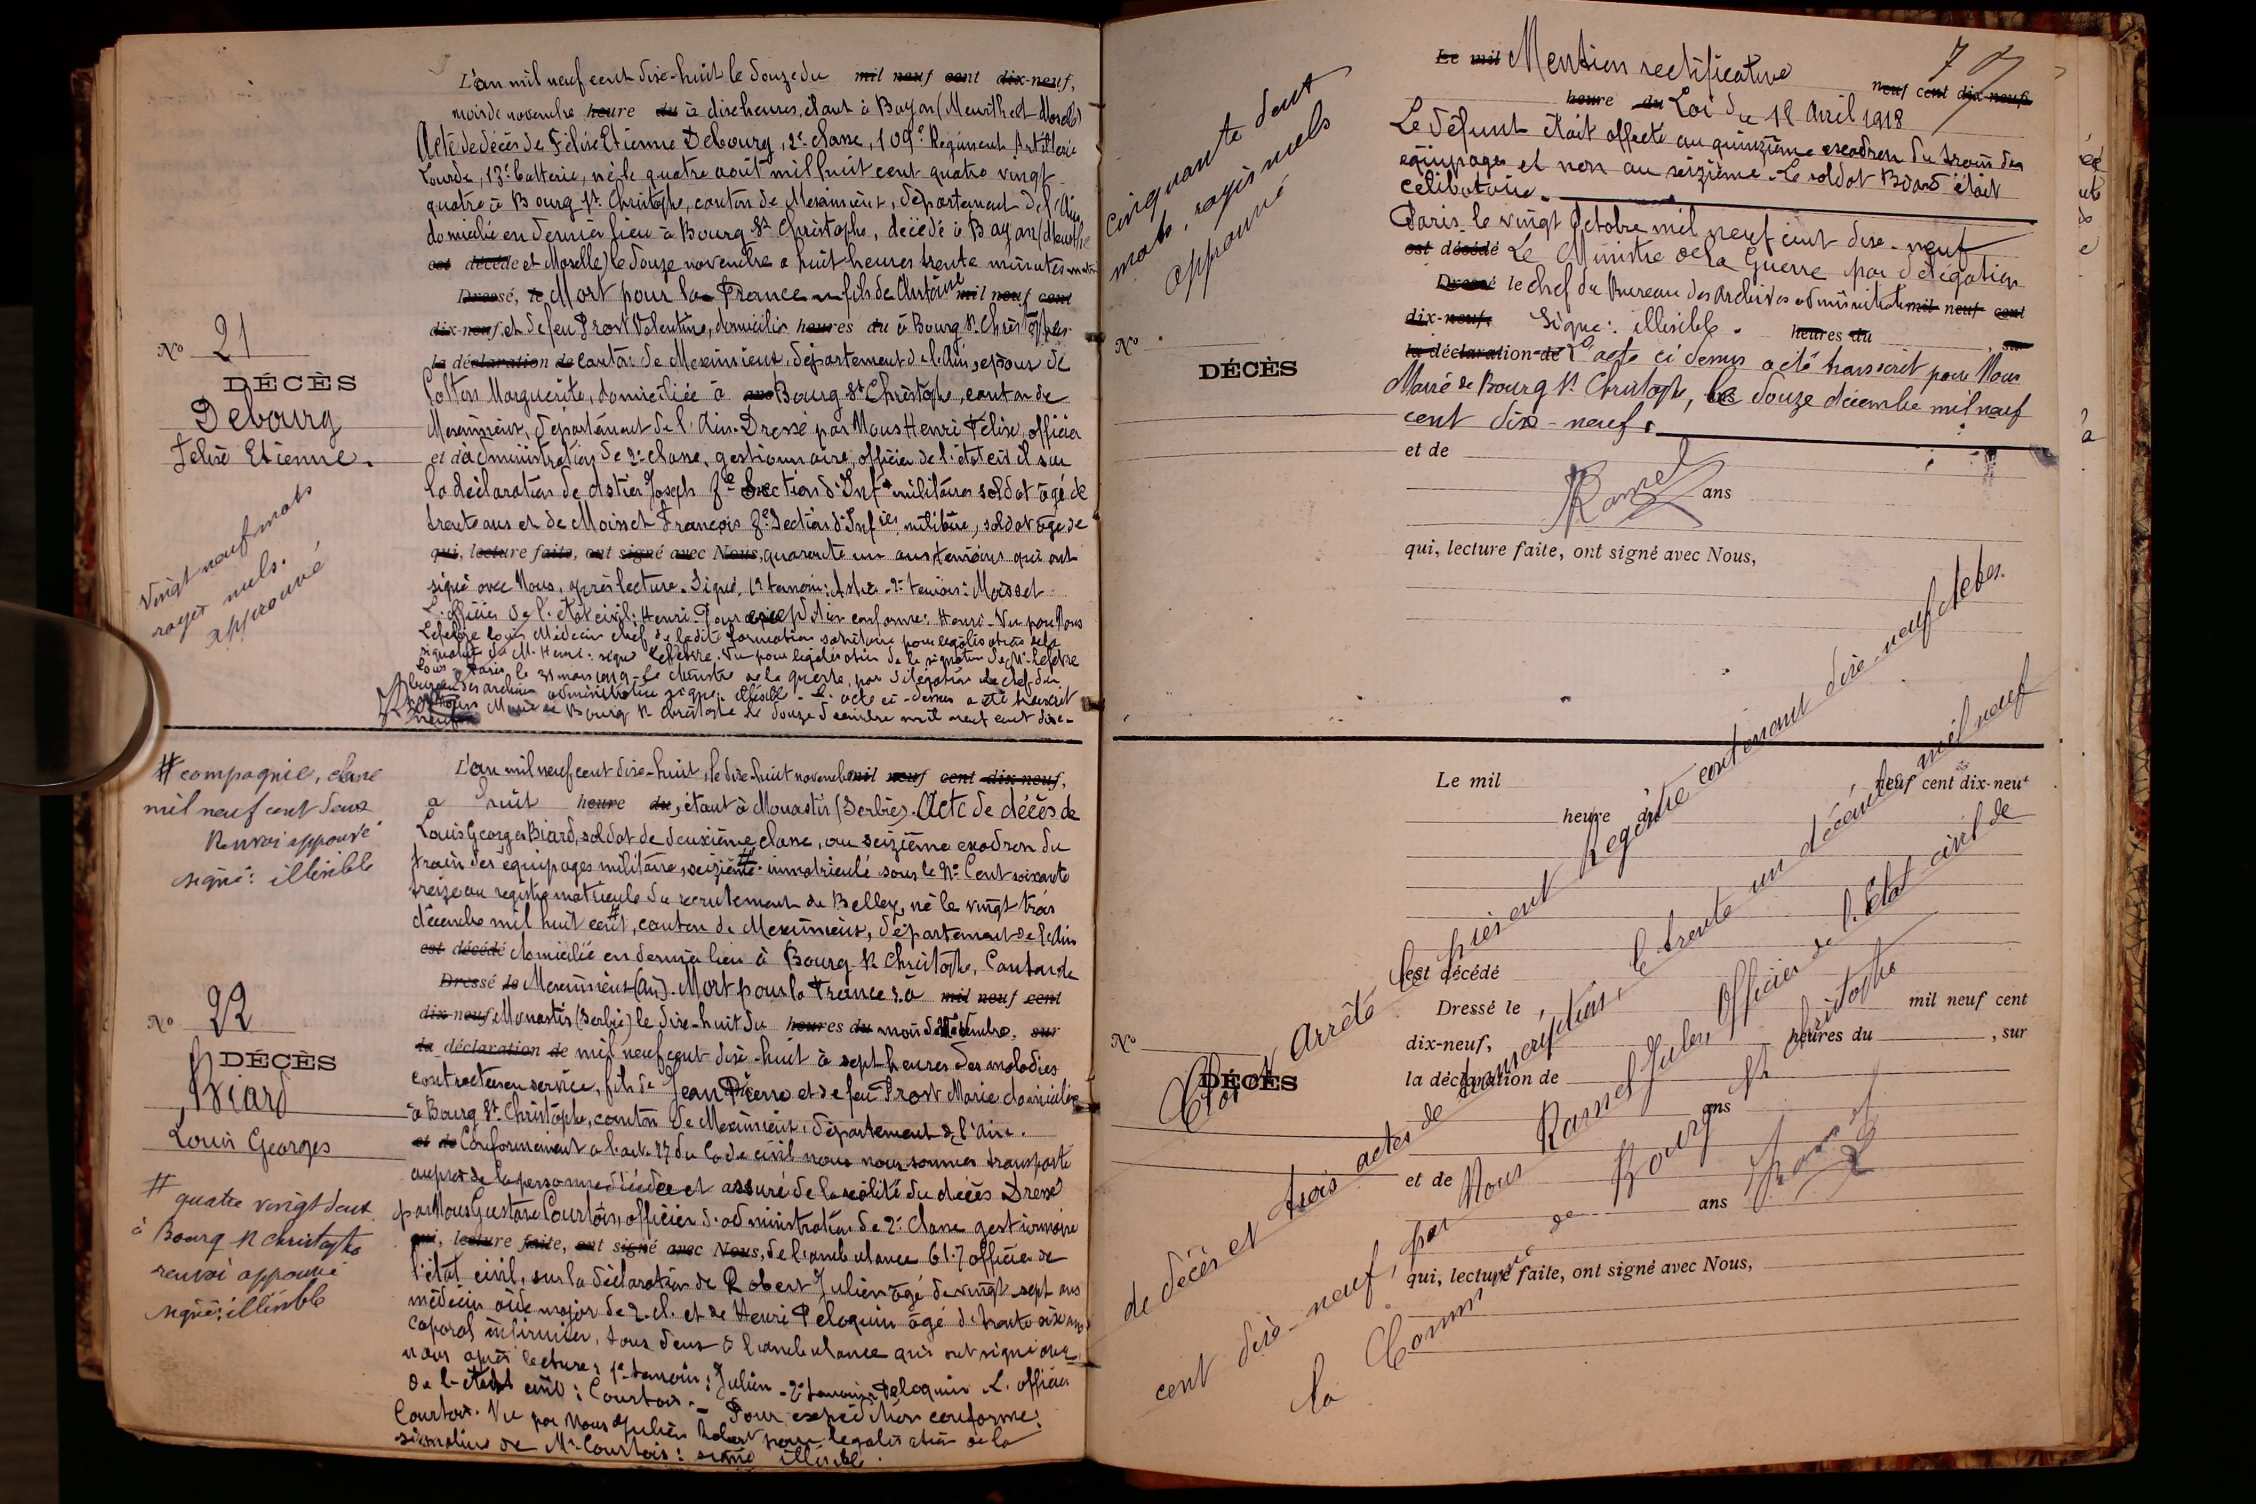 L'an mil neuf cent dix-huit le douze du mil neuf cent dix-neuf,
mois de novembre heure du à dix heures, étant à Bayon (Meurthe et Moselle)
Acte de décès de Félix Etienne Debourg, 2e classe, 109e Régiment Artillerie
Lourde, 13e batterie, né le quatre août mil huit cent quatre vingt
quatre à Bourg St Christophe, canton de Meximieux, département de l'Ain
domicilié en dernier lieu à Bourg St Christophe, décédé à Bayon (Meurthe
est décédé et Moselle) le douze novembre à huit heures trente minutes matin
Dressé, le Mort pour la France fils de Antoine mil neuf cent
dix-neuf, et de feu Prost Valentine, domiciliés heures du à Bourg St Christophe
la déclaration de canton de Meximieux, département de l'Ain, époux de
Marguerite, domiciliée à Bourg St Christophe, canton de
Meximieux, département de l'Ain. Dressé par Nous Henri Félix, officier
et d'administration de 2e classe, gestionnaire, officier de l'état civil sur
la déclaration de Astier Joseph Section d'Inf militaires soldat âgé de
trente ans et de Moisset François Section d'Inf militaire, soldat âgé de
qui, lecture faite, ont signé avec Nous, quarante un ans témoins qui ont
signé avec Nous, après lecture. Signé, 1r témoin: Astier. 2e témoin: Moisset
L'officier de l'état civil: Henri. Pour expédition conforme: Henri. Vu par Nous
Lefebvre Louis Médecin chef de ladite formation sanitaire pour légalisation de la
signature de M. Henri: signé Lefebvre. Vu pour légalisation de la signature de Mr Lefebvre
Louis Paris, le 31 mars 1919. Le Ministre de la guerre, par délégation le chef du
bureau des archives administratives signé: illisible. L'acte ci-dessus a été transcrit
Maire de Bourg St Christophe le douze décembre mil neuf cent dix-
neuf
No 21
DÉCÈS
Debourg
Félix Etienne.
vingt neuf mots
rayés nuls.
approuvé
# compagnie, classe
mil neuf cent deux
Renvoi approuvé
signé: illisible
L'an mil neuf cent dix-huit, le dix-huit novembre mil neuf cent dix-neuf,
a huit heure du, étant à Monastir (Serbie). Acte de décès de
Louis Georges Biard, soldat de deuxième classe, au seizième escadron du
train des équipages militaire, seizième # immatriculé sous le No Cent soixante
treize au registre matricule du recrutement de Belley, né le vingt trois
décembre mil huit cent #, canton de Meximieux, département de l'Ain
est décédé domicilié en dernier lieu à Bourg St Christophe, Canton de
Dressé le Meximieux (Ain). Mort pour la France à mil neuf cent
dix-neuf, Monastir (Serbie) le dix-huit du heures du mois de novembre, sur
la déclaration de mil neuf cent dix-huit à sept heures des maladies
contractées en service, fils de Jean Pierre et de feu Prost Marie domiciliés
à Bourg St Christophe, canton de Meximieux, département de l'Ain.
et de Conformément à l'art. 77 du Code civil nous nous sommes transporté
auprès de la personne décédée et assuré de la réalité du décès Dressé
par Nous Gustave Courtois, officier d'administration de 2e classe gestionnaire
qui, lecture faite, ont signé avec Nous, de l'ambulance officier de
l'état civil, sur la déclaration de Robert Julien âgé de vingt sept ans
médecin aide major de 2. cl. et de Henri Péloquin âgé de trente six ans
caporal infirmier, tous deux à l'ambulance qui ont signé avec
nous après lecture, 1e témoin: Julien. 2e témoin Péloquin L'officier
de l'état civil: Courtois. Pour expédition conforme.
Courtois. Vu par Nous Julien Robert pour légalisation de la
signature de Mr Courtois: signé illisible.
No 22
DÉCÈS
Biard
Louis Georges
# quatre vingt deux
à Bourg St Christophe
renvoi approuvé
signé: illisible
cinquante deux
mots, rayés nuls
approuvé
No
DÉCÈS
Le mil Mention rectificative
neuf cent dix-neuf.
heure du Loi du 18 Avril 1918
Le défunt était affecté au quinzième escadron du train des
équipages et non au seizième. Le soldat Biard était
célibataire.
Paris, le vingt Octobre mil neuf cent dix-neuf
est décédé Le Ministre de la Guerre par délégation
Dressé le chef du Bureau des Archives administratives mil neuf cent
dix-neuf, Signé: illisible. heures du , sur
la déclaration de L'acte ci dessus a été transcrit par Nous
Maire de Bourg St Christophe, le douze décembre mil neuf
cent dix-neuf.
et de
Ramel
ans
qui, lecture faite, ont signé avec Nous,
Le mil
neuf cent dix-neuf
heure du
est décédé
Dressé le , mil neuf cent
dix-neuf, heures du , sur
la déclaration de
ans
et de
ans
qui, lecture faite, ont signé avec Nous,
No
DÉCÈS
Clos et Arrêté le présent Registre contenant dix-neuf actes
de décès et trois actes de transcription, le trente un décembre mil neuf
cent dix-neuf, par Nous Ramel Jules, Officier de l'Etat civil de
la Commune de Bourg St Christophe
Ramel